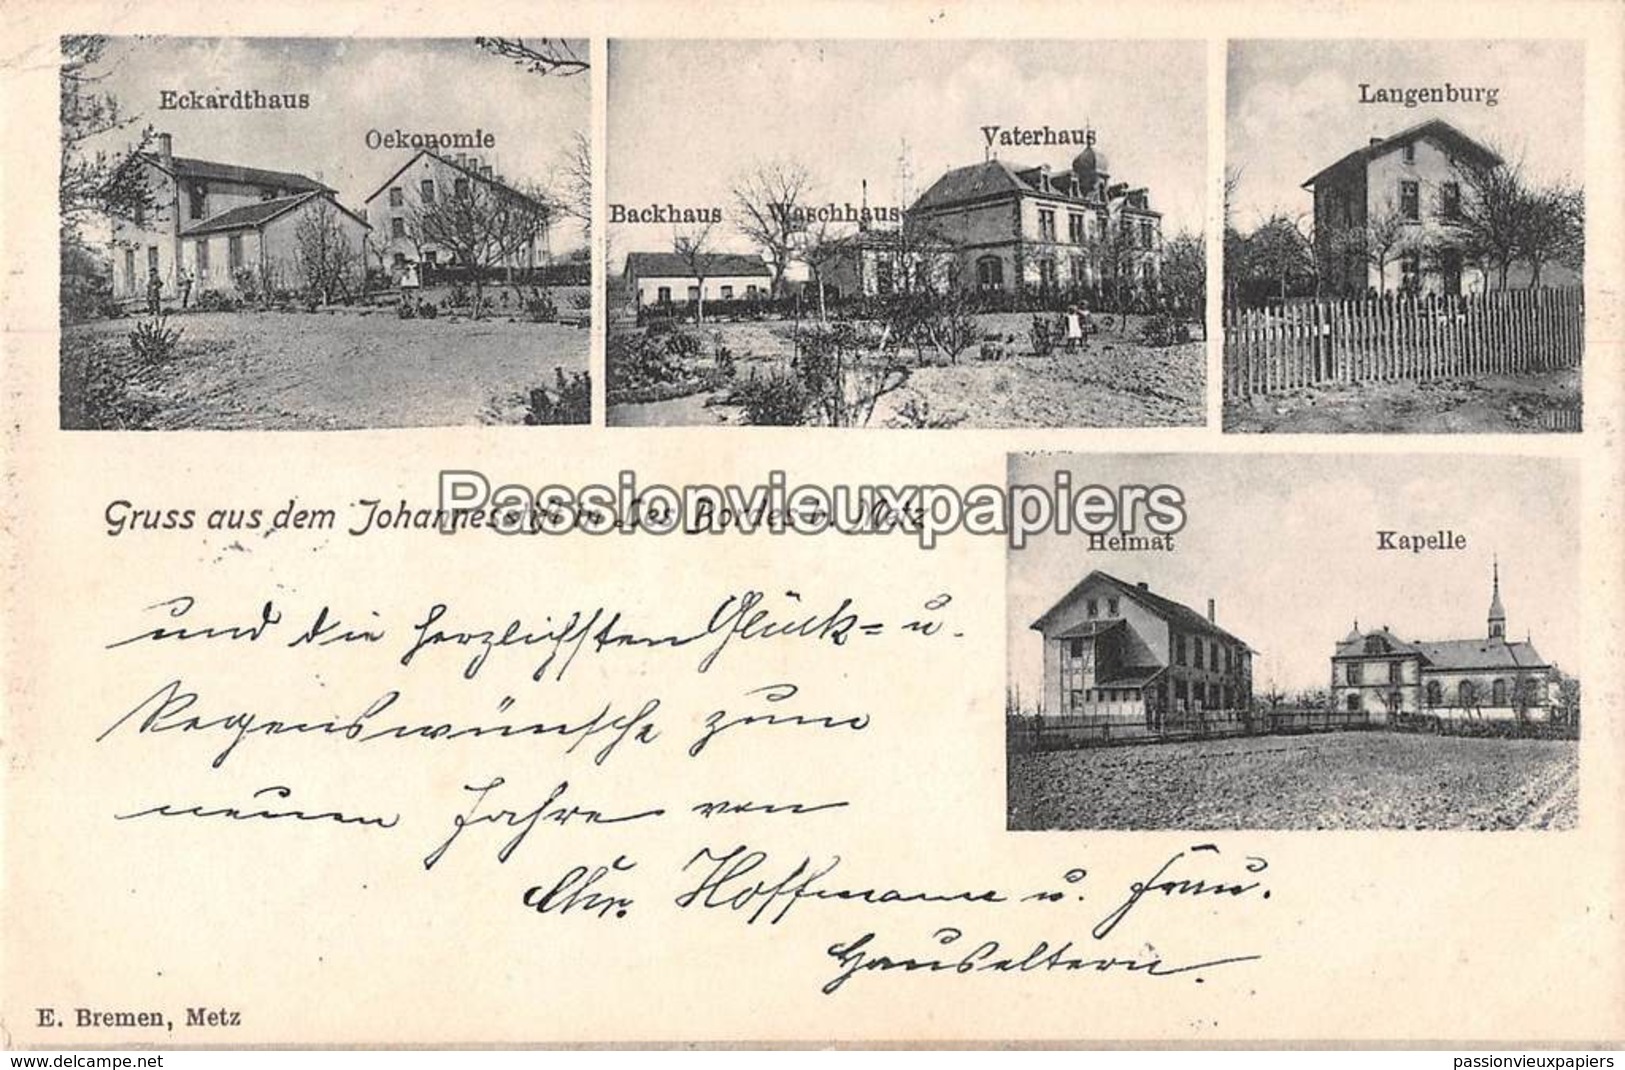 Eckardthaus
Oekonomie
Backhaus
Waschhaus
Vaterhaus
Langenburg
Gruss aus dem Johannesstift in Les Bordes b. Metz
Passionvieuxpapiers
Heimat
Kapelle
und die herzlichsten Glück- u.
Segenswünsche zum
neuen Jahre von
Chr. Hoffmann u. Frau.
Hauseltern.
E. Bremen, Metz
delcampe.net
passionvieuxpapiers